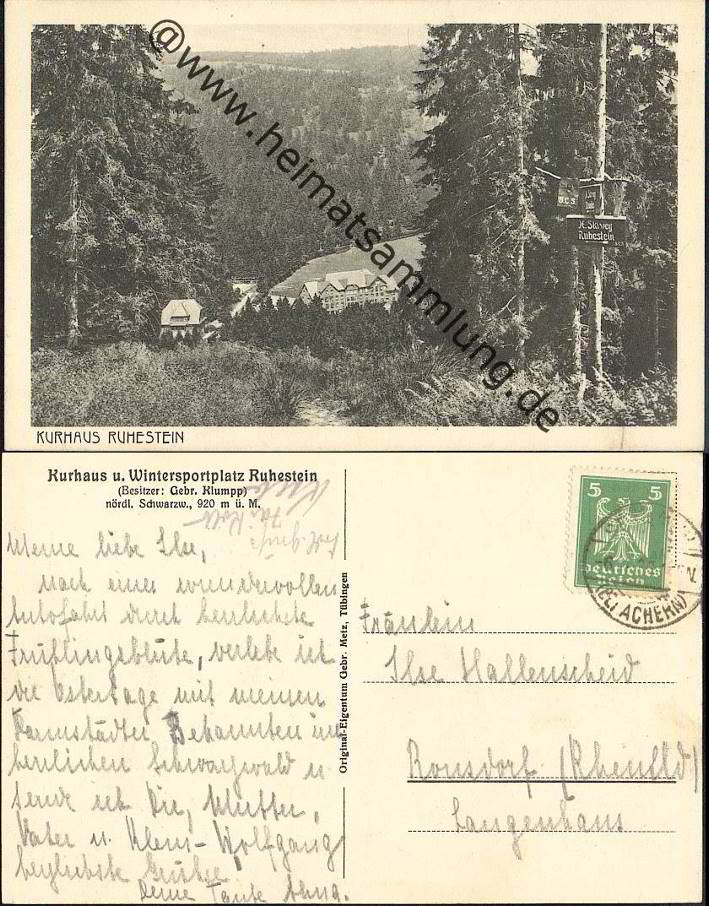 @www.heimatsammlung.de
B.C.S.
H. Skiweg
Ruhestein
KURHAUS RUHESTEIN
Kurhaus u. Wintersportplatz Ruhestein
(Besitzer: Gebr. Klumpp)
nördl. Schwarzw., 920 m ü. M.
Meine liebe Ilse,
nach einer wundervollen
Autofahrt durch herrlichste
Frühlingsblüte, verlebe ich
die Ostertage mit meinen
Darmstädter Bekannten im
herrlichen Schwarzwald u.
sende ich Dir, Mutter,
Vater u. Klein-Wolfgang
herzlichste Grüsse
Deine Tante Anna.
Original-Eigentum Gebr. Metz, Tübingen
5 5
Deutsches
Reich
(BEI ACHERN)
Fräulein
Ilse Hallenscheid
Ronsdorf (Rheinlld)
Langenhaus